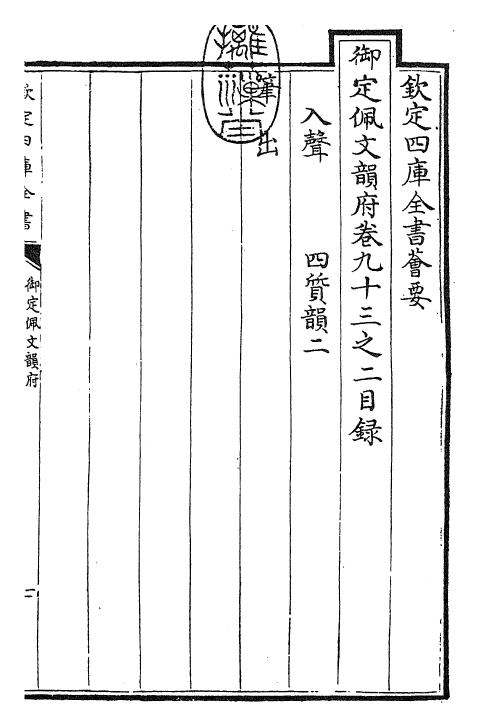 欽定四庫全書薈要
御定佩文韻府卷九十三之二目録
入聲　四質韻二
出
欽定四庫全書
御定佩文韻府